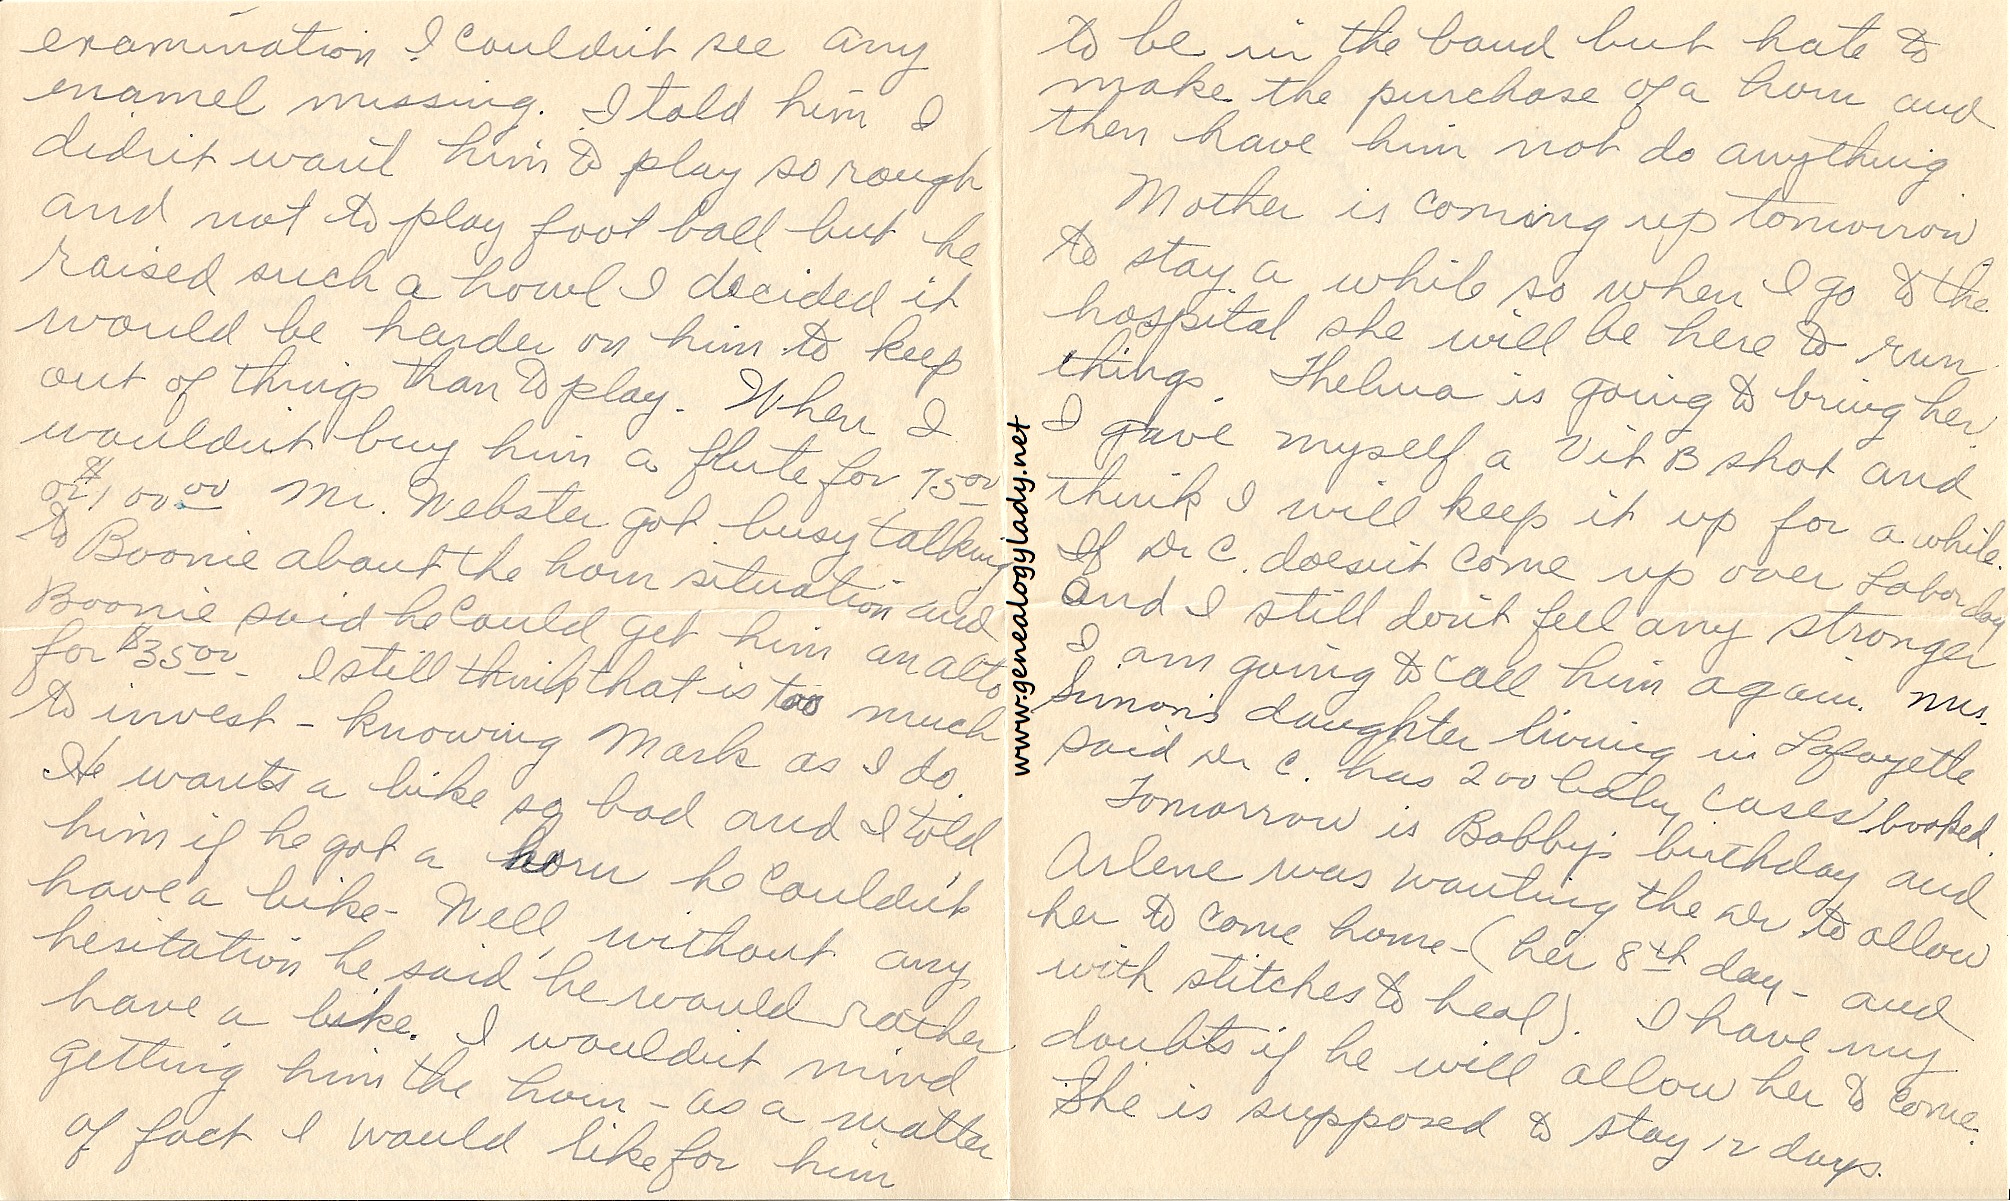 examination I couldn't see any
enamel missing. I told him I
didn't want him to play so rough
and not to play foot ball but he
raised such a howl I decided it
would be harder on him to keep
out of things than to play. When I
wouldn't buy him a flute for 75 00
or $100 00 Mr. Webster got busy talking
to Boonie about the horn situation and
Boonie said he could get him an alto
for $35 00 - I still think that is too much
to invest - knowing Mark as I do.
He wants a bike so bad and I told
him if he got a horn he couldn't
have a bike - Well, without any
hesitation he said he would rather
have a bike. I wouldn't mind
getting him the horn - as a matter
of fact I would like for him
to be in the band but hate to
make the purchase of a horn and
then have him not do anything
Mother is coming up tomorrow
to stay a while so when I go to the
hospital she will be here to run
things. Thelma is going to bring her.
I gave myself a Vit B shot and
think I will keep it up for a while.
If Dr C. doesn't come up over Labor day
and I still don't feel any stronger
I am going to call him again. Mrs.
Simon's daughter living in Lafayette
said Dr C. has 200 baby cases booked.
Tomorrow is Bobby's birthday and
Arlene was wanting the Dr to allow
her to come home - (her 8th day - and
with stitches to heal). I have my
doubts if he will allow her to come.
She is supposed to stay 12 days.
www.genealogyjlady.net